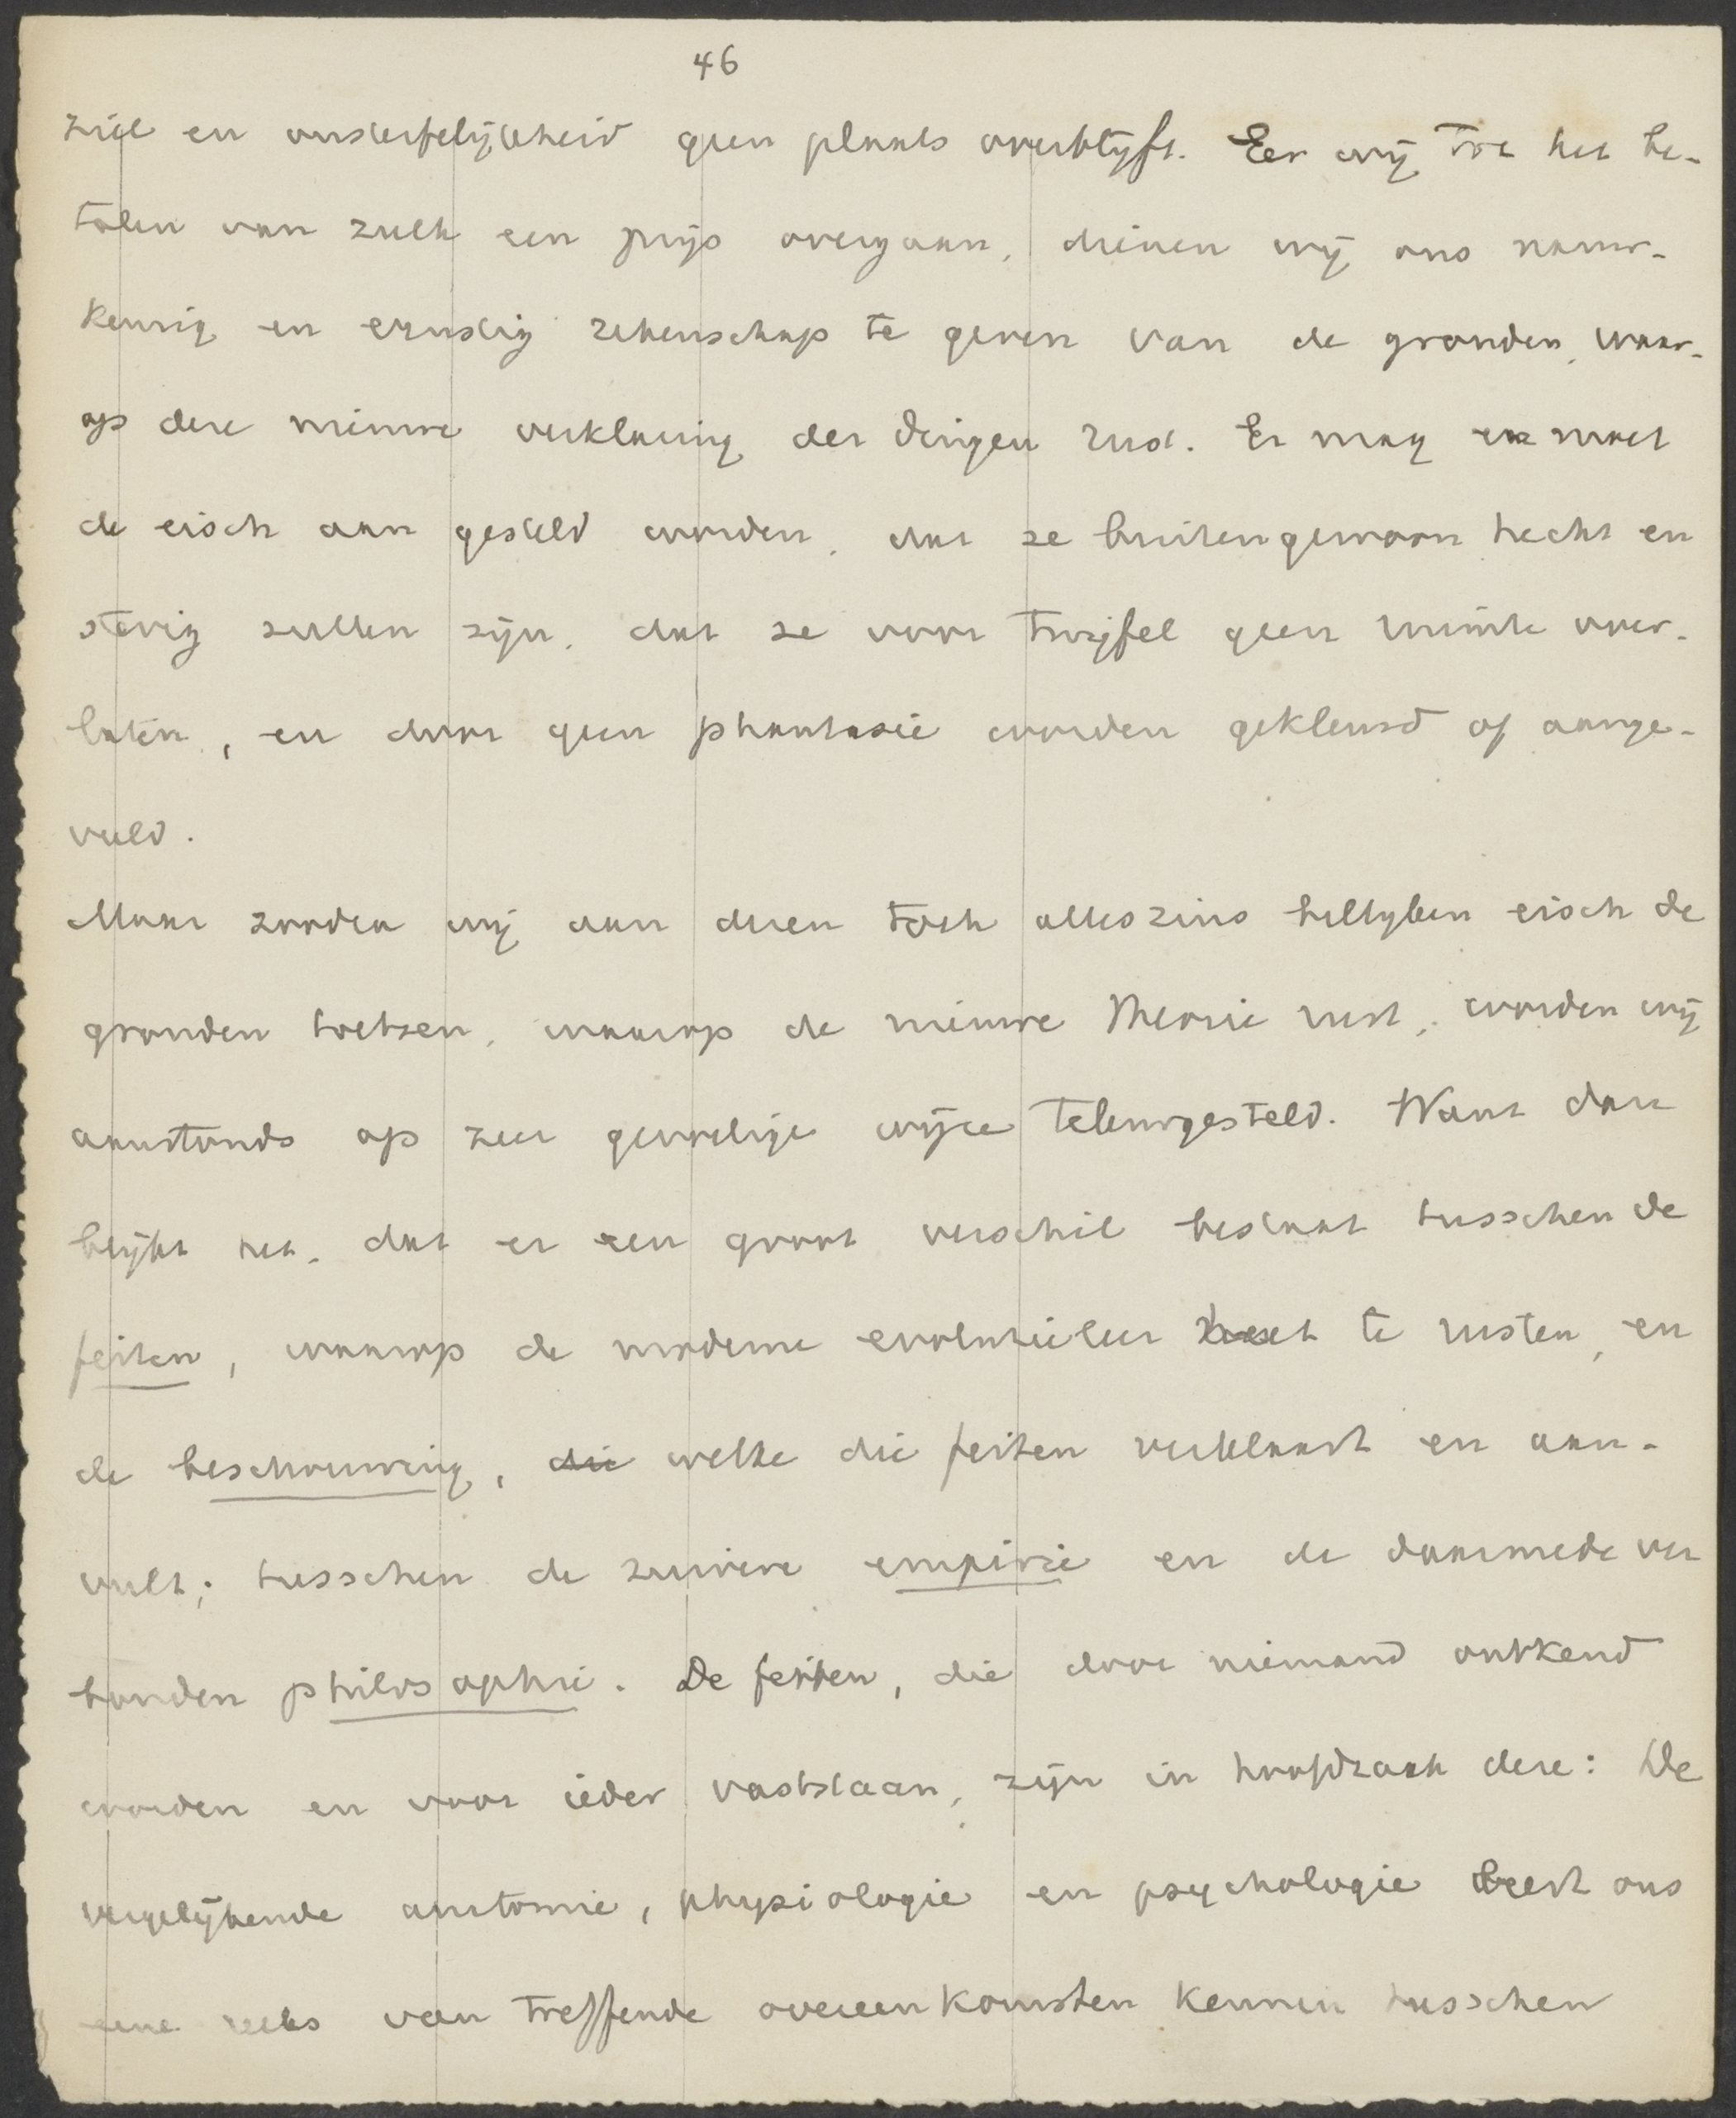 46
ziel en onsterfelijkheid geen plaats overblijft. Eer wij tot het be-
talen van zulk een prijs overgaan, dienen wij ons nauw-
keurig en ernstig rekenschap te geven van de gronden, waar-
op deze nieuwe verklaring der dingen rust. Er mag en moet
de eisch aan gesteld worden, dat ze buitengewoon hecht en
stevig zullen zijn, dat ze voor twijfel geen ruimte over-
laten, en door geen phantasie worden gekleurd of aange-
vuld.
Maar zoodra wij aan dezen toch alleszins billijken eisch de
gronden toetsen, waarop de nieuwe theorie rust, worden wij
aanstonds op zeer gevoelige wijze teleurgesteld. Want dan
blijkt het, dat er een groot verschil bestaat tusschen de
feiten, waarop de moderne evolutieleer heet te rusten, en
de beschouwing, die welke die feiten verklaart en aan-
vult; tusschen de zuivere empirie en de daarmede ver
bonden philosophie. De feiten, die door niemand ontkend
worden en voor ieder vaststaan, zijn in hoofdzaak deze: De
vergelijkende anatomie, physiologie en psychologie leert ons
eene reeks van treffende overeenkomsten kennen tusschen